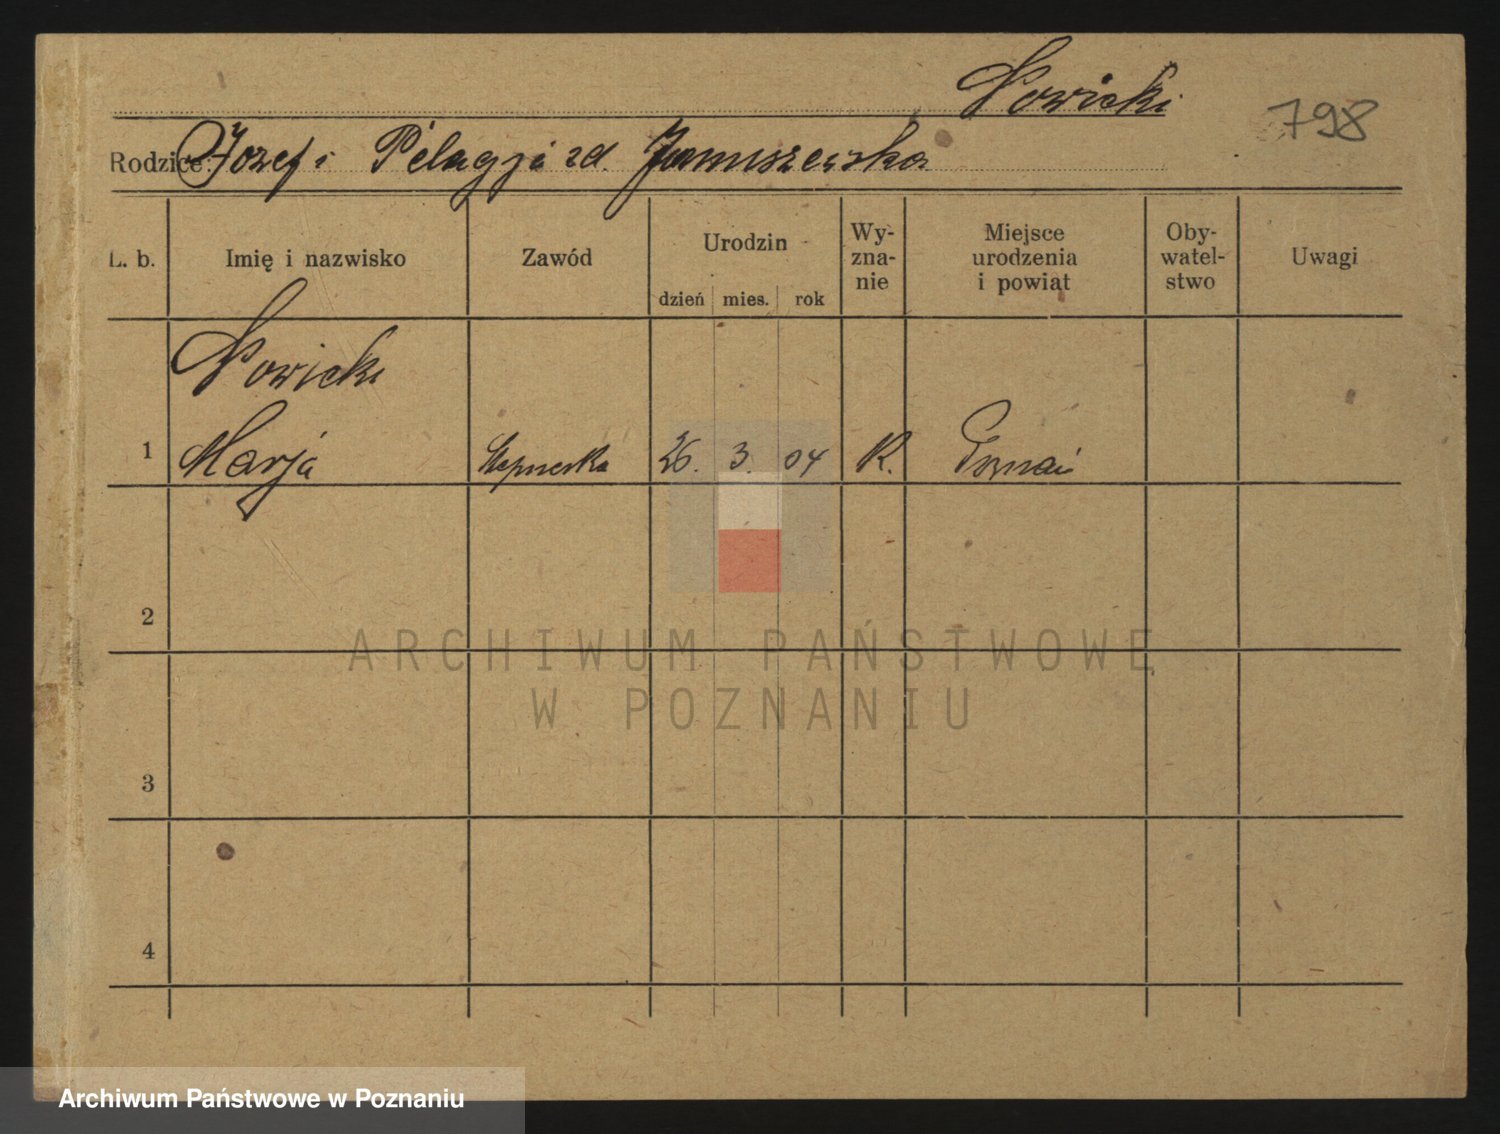 Nowicki
798
Rodzice: Józef i Pelagja zd. Januszewska
L. b. Imię i nazwisko Zawód Urodzin dzień mies. rok Wy-zna-nie Miejsce urodzenia i powiat Oby-watel-stwo Uwagi
Nowicki
1 Marja 26. 3. 04 K. Poznań
2
ARCHIWUM PAŃSTWOWE
W POZNANIU
3
4
Archiwum Państwowe w Poznaniu